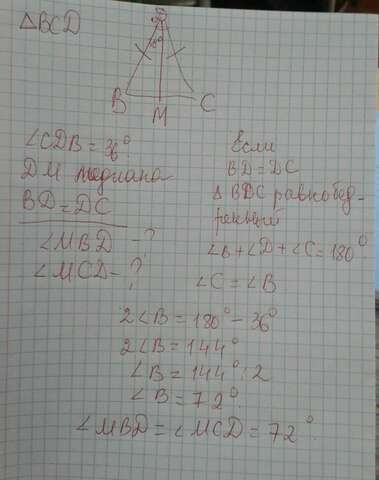 △BCD
B
M
C
∠CDB = 36°.
DM медиана
BD = DC
∠MBD - ?
∠MCD - ?
Если
BD = DC
△ BDC равнобед-
ренный
∠B + ∠D + ∠C = 180°
∠C = ∠B
2∠B = 180° - 36°
2∠B = 144°
∠B = 144° : 2
∠B = 72°.
∠MBD = ∠MCD = 72°.